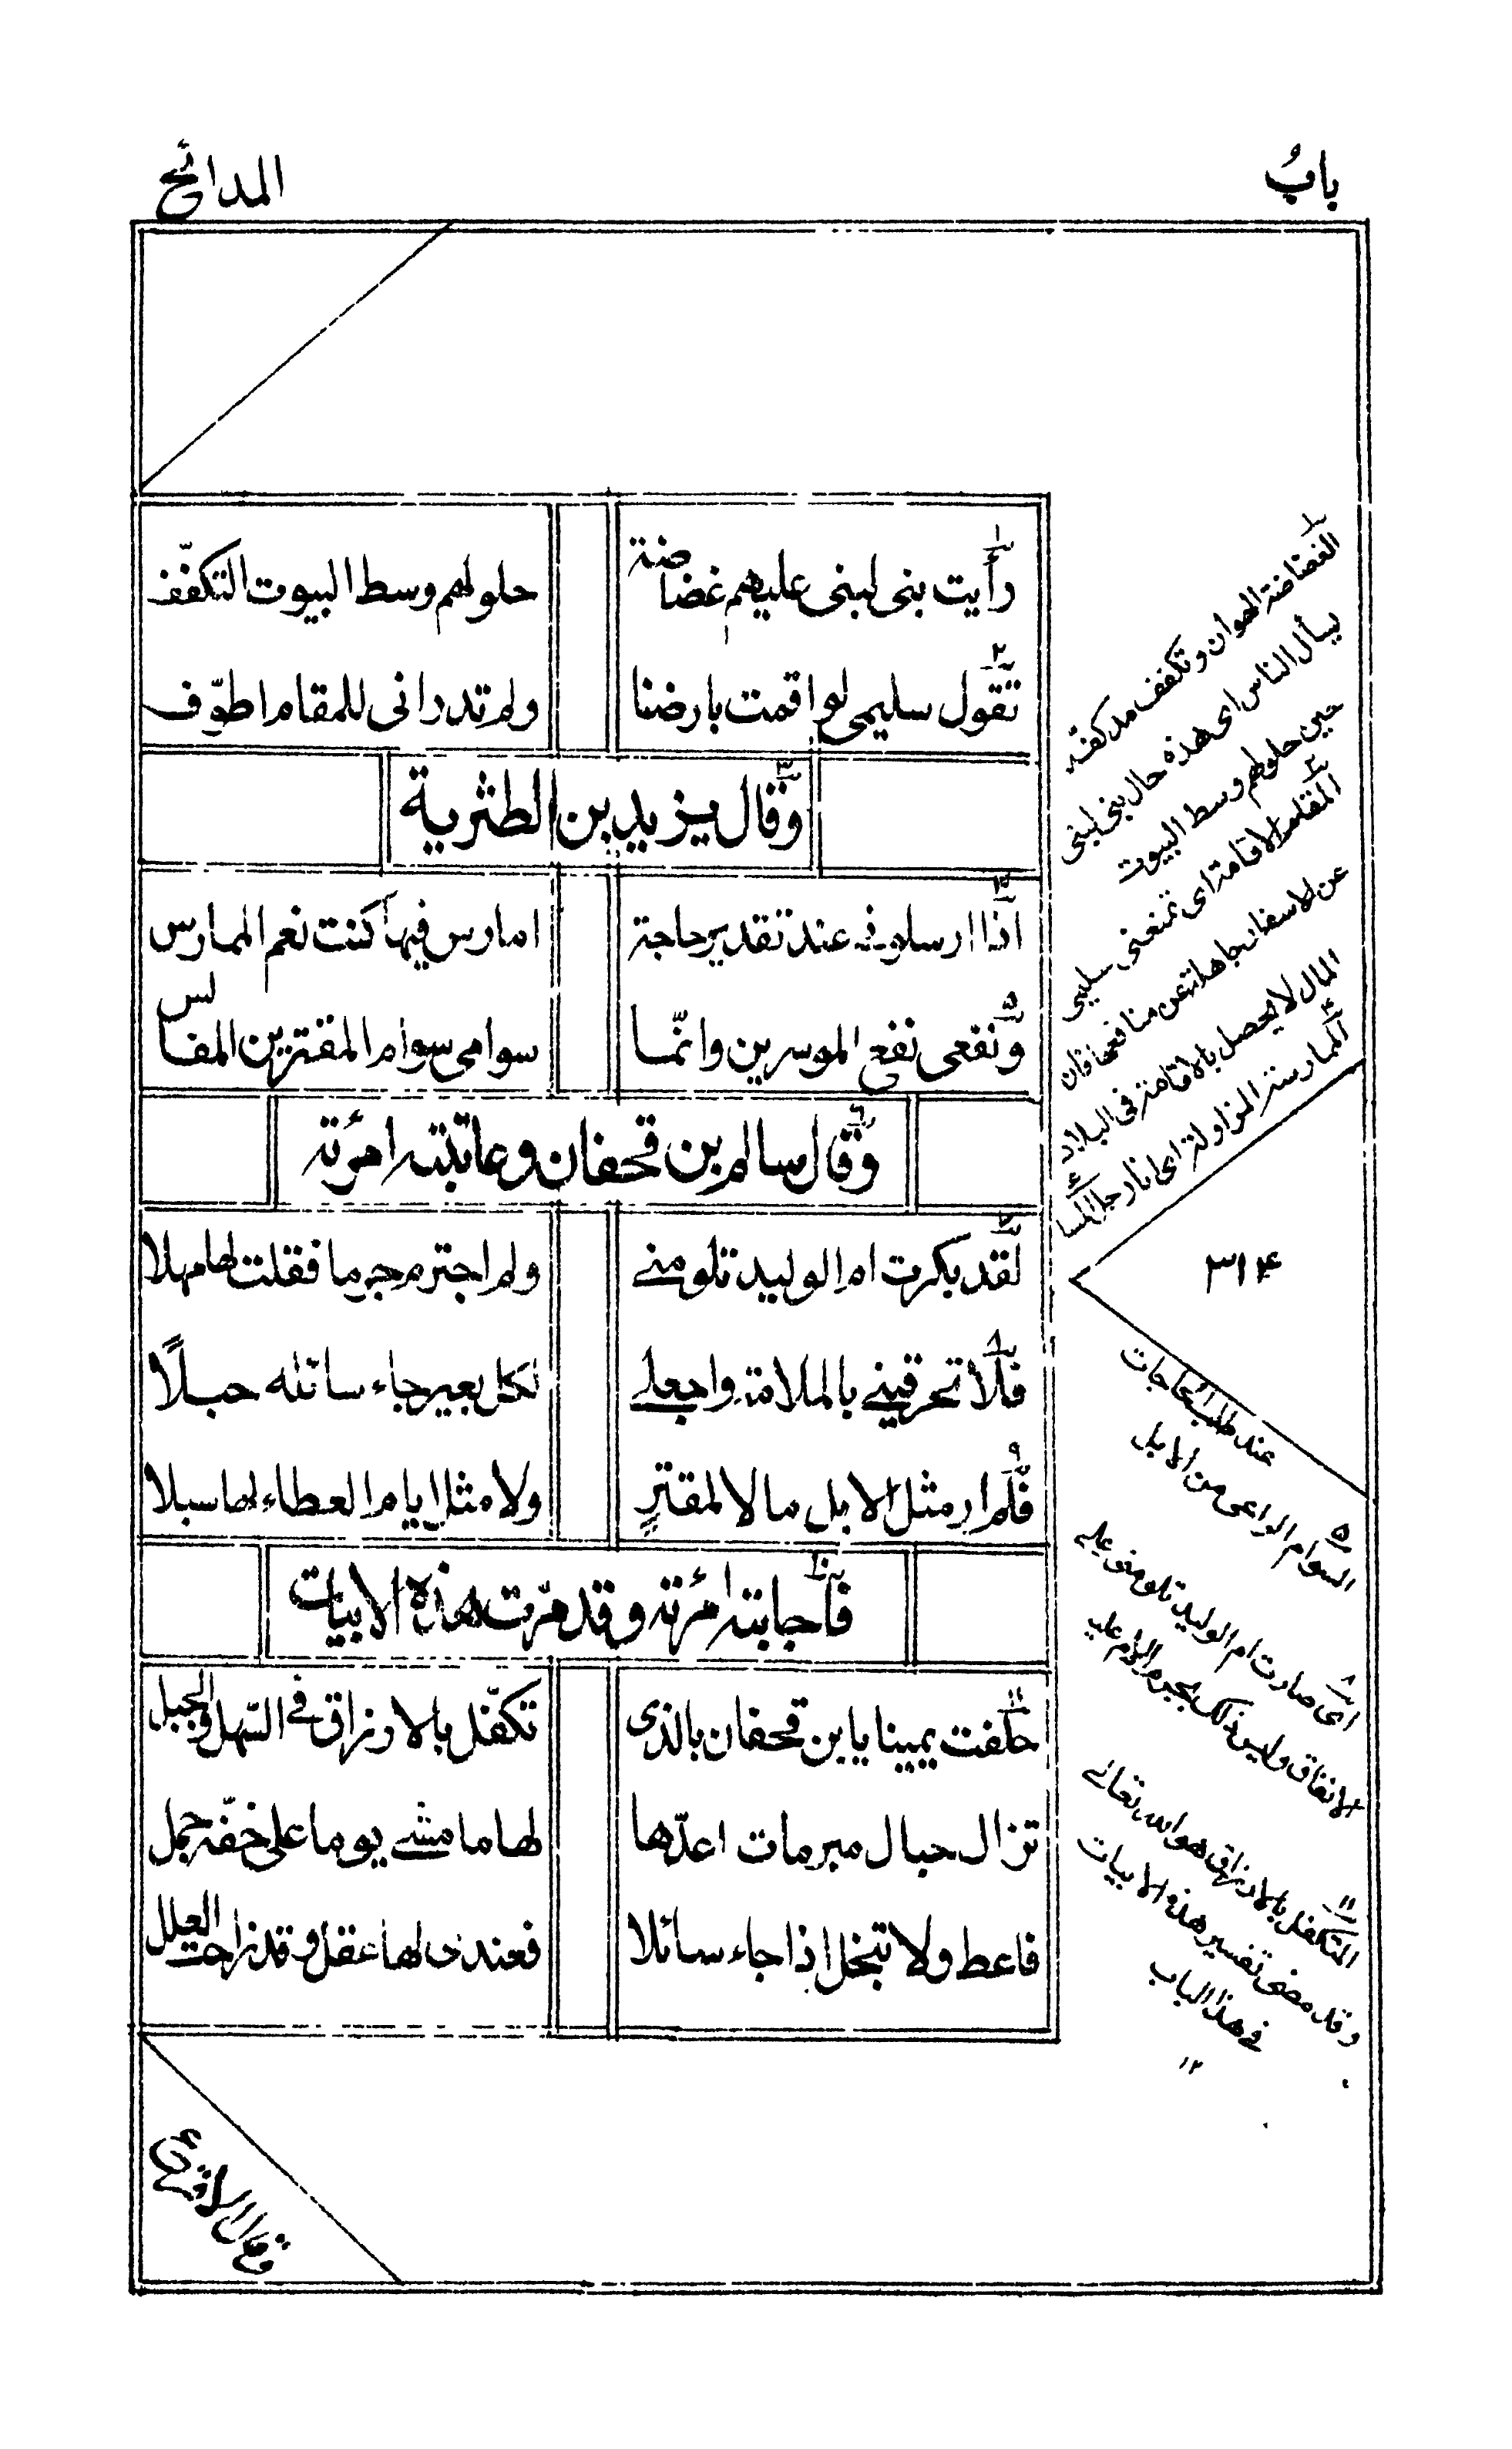 بابُ
المدائح
رأيت بنى لبنى عليهم غضاضة
حلولهم وسط البيوت التكفّف
تقول سليمى لو اقمت بارضنا
ولم تدر انى للمقام اطوّف
وقال يزيد بن الطثرية
اذا ارسلونى عند تقدير حاجة
امارس فيها كنت نعم الممارس
ونفعى نفع الموسرين وانّما
سوامى سوام المقترين المفالس
وقال سالم بن قحفان وعاتبته امرئته
لقد بكرت ام الوليد تلومنى
ولم اجترم جرما فقلت لها مهلا
فلا تحرقينى بالملامة واجعلى
لكل بعير جاء سائله حبلًا
فلم ار مثل الابل مالا لمقترٍ
ولا مثل ايام العطاء لها سبلا
فأجابته امرئته وقد مرّت هذه الابيات
حلفت يمينا يا ابن قحفان بالذى
تكفّل بالارزاق فى السّهل والجبل
تزال حبال مبرمات اعدّها
لها ما مشى يوما على خفّه جمل
فاعط ولا تبخل اذا جاء سائلا
فعندى لها عقل وقد زاحت العلل
١ الغضاضة الهوان وتكفف مد كفه
يسأل الناس اى هذه حال بنى لبنى
حين حلولهم وسط البيوت
٢ المقام الاقامة اى تمنعنى سليمى
عن الاسفار جاهلة عن منافعها فان
المال لا يحصل بالاقامة فى البلاد
٤ الممارسة المزاولة اى انا رجل
٣١٤
عند طلب الحاجات
٥ السوام الراعى من الابل
اى صارت ام الوليد تلومنى على
الانفاق وليس ذلك بجرم
١١ المتكفل بالارزاق هو الله تعالى
وقد مضى تفسير هذه الابيات
فى هذا الباب
١٢